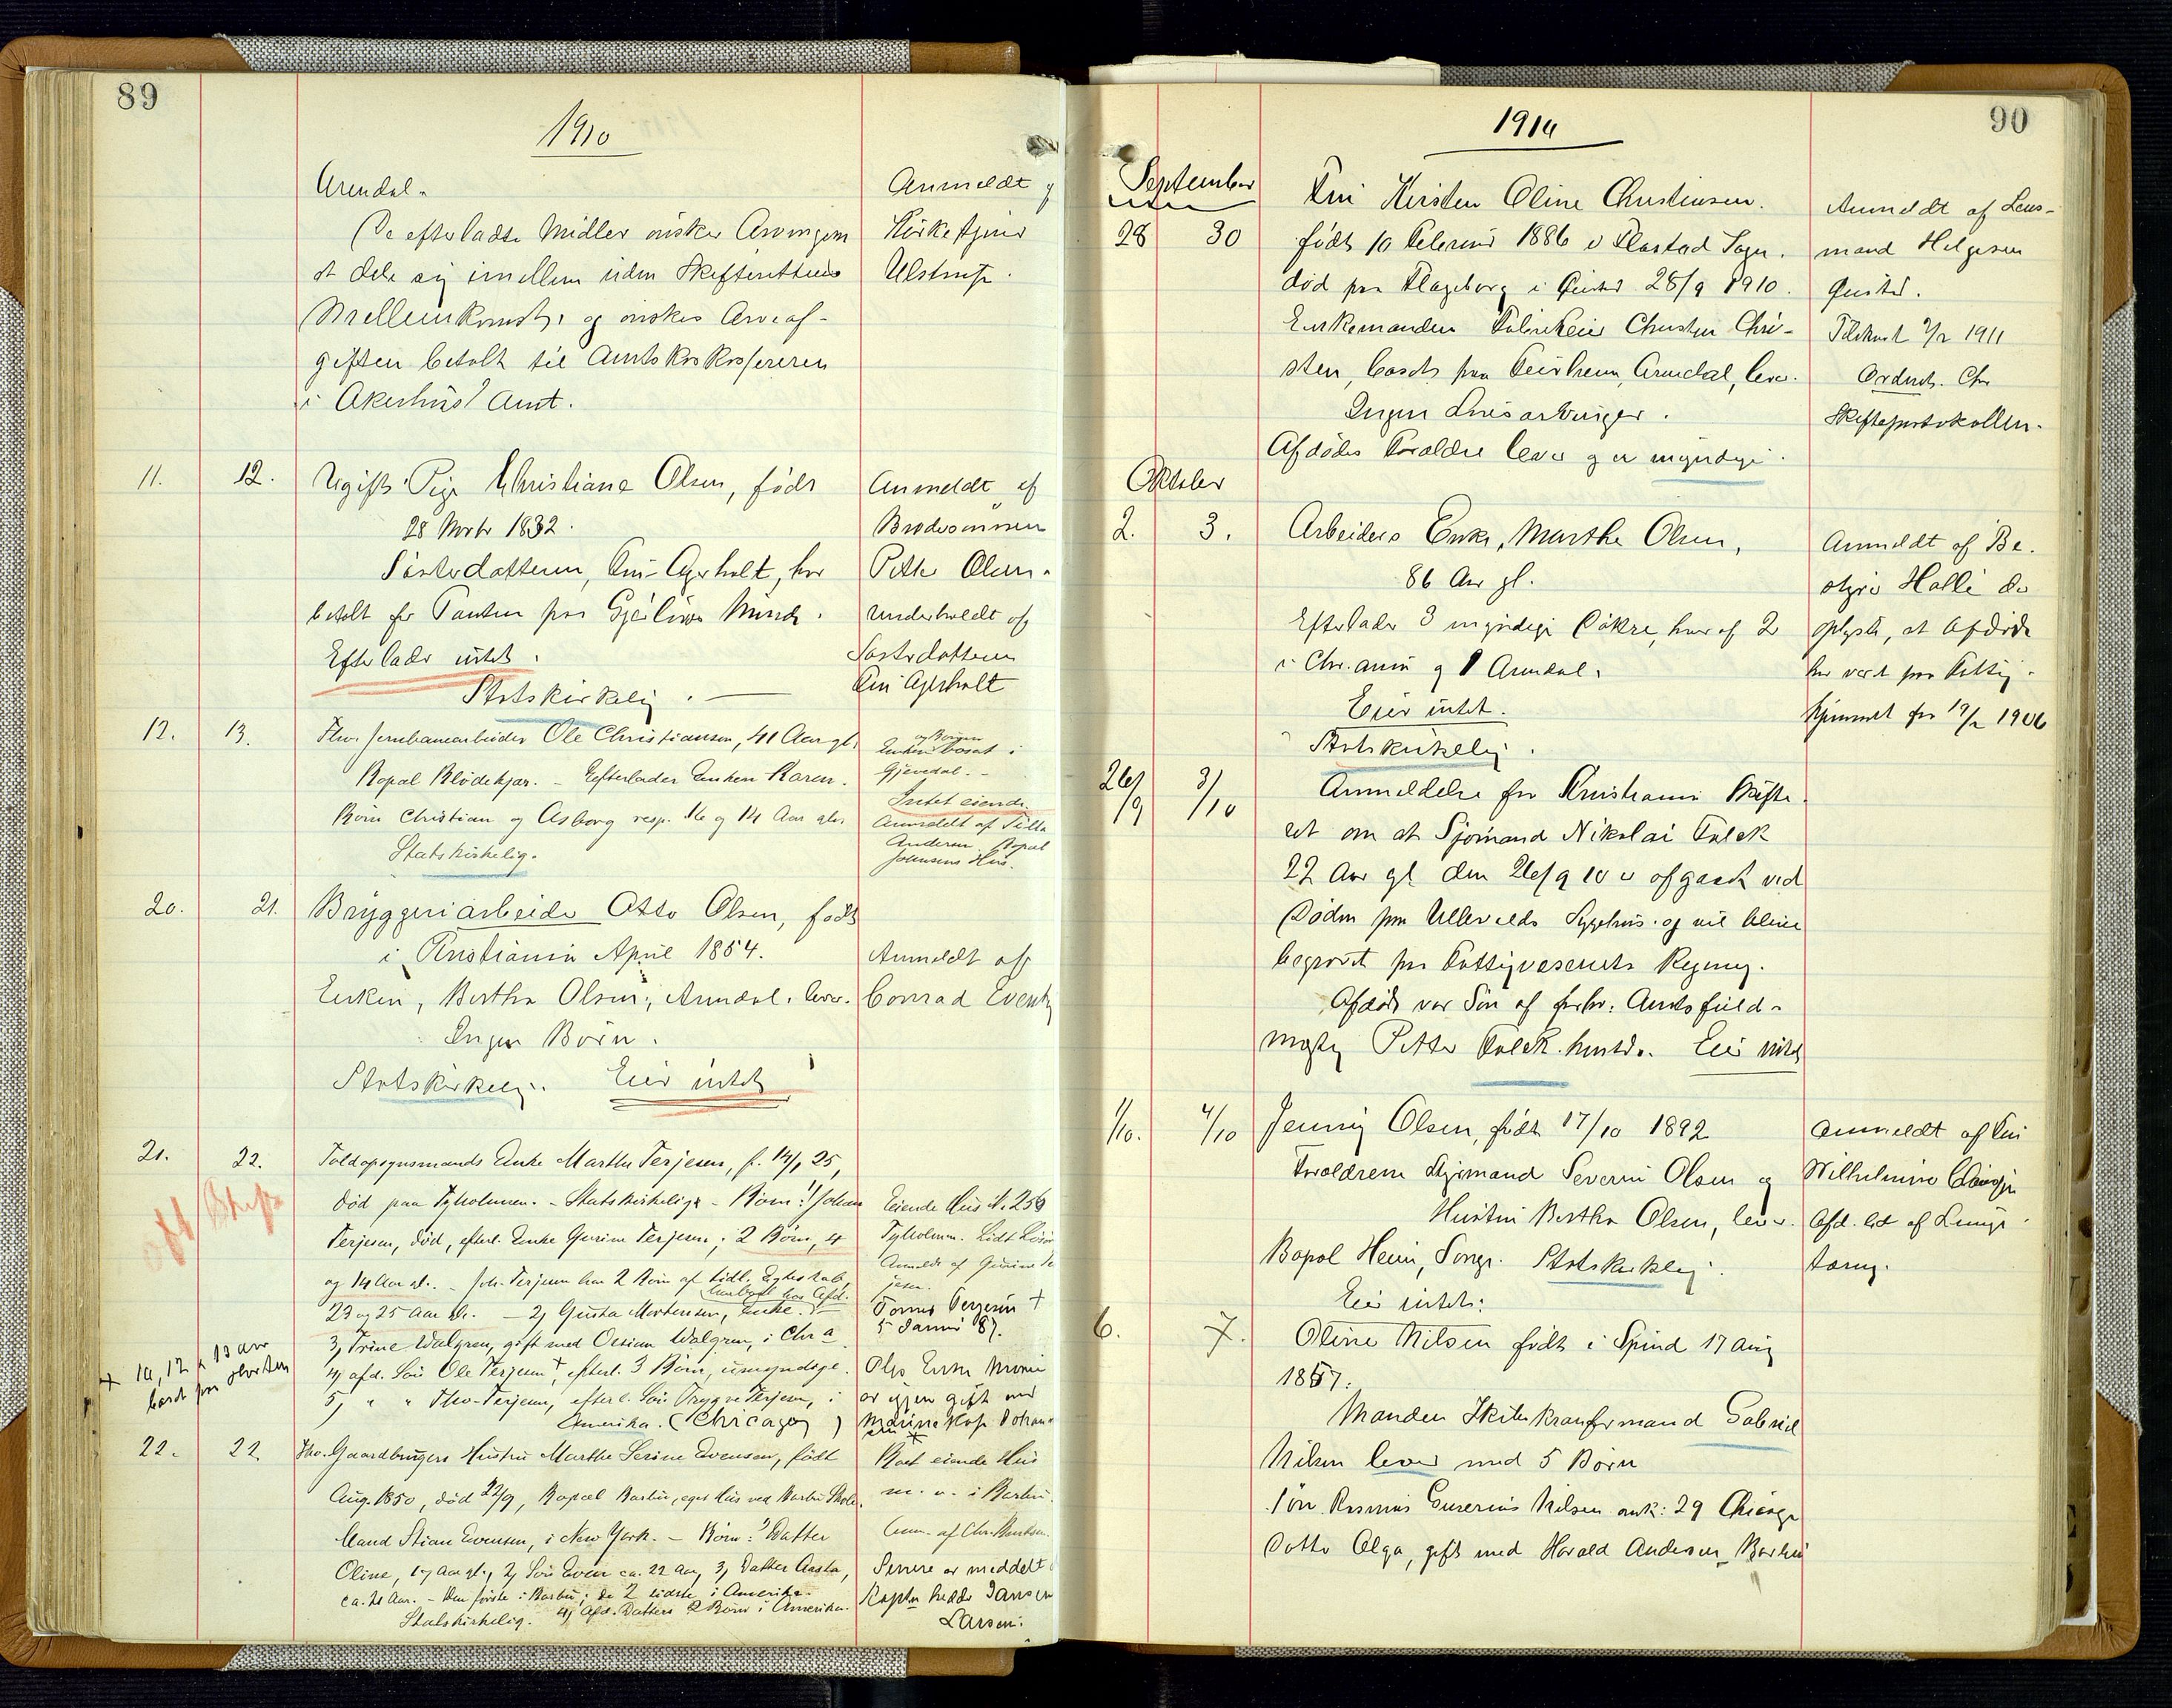 89
1910
Arendal.
De efterladte Midler ønsker Arvingerne
at dele sig imellem uden Skifterettens
Mellemkomst, og ønskes Arveaf-
giften betalt til Amtskasseereren
i Akershus Amt.
Anmeldt
Kirketjener
Ulstrup.
11. 12. Ugift Pige Christiane Olsen, født
28 Novbr 1832.
Søsterdatteren, Agerholt, har
betalt for Tanten paa Minde.
Efterlader intet.
Statskirkelig.
Anmeldt af
Brodersønnen
Peter Olsen.
Underholdt af
Søsterdatteren
Agerholt
12. 13. Fhv. Jernbanearbeider Ole Christiansen, 41 Aar gl.
Bopæl Blødekjær. - Efterlader Enken Karen.
Børn Christian og Asborg resp. 16 og 14 Aar gl.
Statskirkelig.
og Børnene
Enken bosat i
Gjevedal. -
Intet eiende.
Anmeldt af Tilla
Andersen, Bopæl
Johnsens Hus.
20. 21. Bryggeriarbeider Otto Olsen, født
i Kristiania April 1854.
Enken, Bertha Olsen, Arendal, lever.
Ingen Børn.
Statskirkelig. Eier intet
Anmeldt af
Conrad Evensen
21. 22. Toldopsynsmands Enke Marthe Terjesen, f. 14/1 25,
død paa Tyholmen. - Statskirkelige - Børn: 1) Johan
Terjesen, død, efterl. Enke Gurine Terjesen; 2 Børn, 4
og 14 Aar gl. - Joh. Terjesen har 2 Børn af tidl. Egteskab,
23 og 25 Aar gl. - 2) Gusta Mortensen, Enke.
3, Trine Walgren, gift med Ossian Walgren, i Chr.a
4) afd. Søn Ole Terjesen +, efterl. 3 Børn, umyndige.
5, " " Thv. Terjesen, efterl. Søn Trygve Terjesen, i
Amerika. (Chicago)
Eiende Hus N. 256
Tyholmen. Lidt Løsøre
Anmeldt af Gurine Te
jesen.
Terjesen +
5 Januar 87.
Oles Enke
er igjen gift med
+ 10, 12 & 13 aar
22. 22 Fhv. Gaardbrugers Hustru Marthe Serine Evensen, født
Aug. 1850, død 22/9, Bopæl Barbu, eget Hus ved Barbu Skole.
Mand Stian Evensen, i New York. - Børn: 1) Datter
Oline, Aar gl., 2, Søn Even ca. 22 Aar, 3, Datter Aasta,
ca. 21 Aar. - Den første i Barbu, de 2 sidste i Amerika.
Statskirkelig. 4) Afd. Datters 2 Børn i Amerika.
Boet eiende Hus
m. v. i Barbu.
Anm. af Chr. Knutsen.
Senere er meddelt
hedder Jansen
Larsen.
90
1910
September
28 30 Fru Kirsten Oline Christensen.
født 10 Februar 1886 i Sogn.
død paa i 28/9 1910.
Enkemanden Christen Chri-
sten, bosat paa Arendal, lever.
Ingen Livsarvinger.
Afdødes Forældre lever og er myndige.
Anmeldt af Lens-
mand Helgesen
Tilskrevet 1911
Skifteprotokollen.
Oktober
2. 3. Arbeiders Enke, Marthe Olsen,
86 Aar gl.
Efterlader 3 myndige Døtre, hvoraf 2
i Chr.ania og 1 Arendal.
Eier intet.
Statskirkelig.
Anmeldt af Be-
styrer Holli der
oplyste, at Afdøde
har været paa Fattig-
hjemmet fra 1906
26/9 3/10 Anmeldelse fra Kristiania Skifte-
ret om at Sjømand Nikolai Falck
22 Aar gl den 26/9 10 er afgaaet ved
Døden paa Ullevaals Sygehus og vil blive
begravet paa Fattigvæsenets Regning.
Afdøde var Søn af forhv. Amtsfuld-
mægtig Petter Falck. Eier intet
1/10. 4/10 Jenny Olsen, født 17/10 1892
Forældrene Styrmand Severin Olsen og
Hustru Bertha Olsen, lever.
Bopæl Heim, Songe. Statskirkelig.
Eier intet.
Anmeldt af Fru
Wilhelmine
Afd. led af Lunge-
tæring.
6. 7. Oline Nilsen født i Spind 17 Aug
1857.
Manden Gabriel
Nilsen lever med 5 Børn
Søn Nilsen 29 Chicago
Datter Olga, gift med Harald Andersen, Barbu